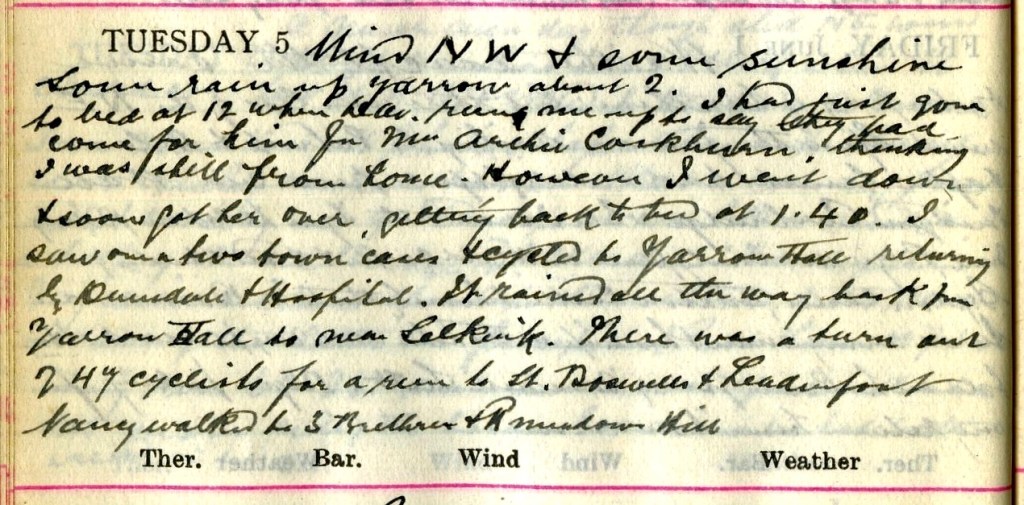 TUESDAY 5 Wind NW & some sunshine
Some rain up Yarrow about 2. I had just gone
to bed at 12 when rung me up to say they had
come for him for Mrs Archie Cockburn, thinking
I was still from home. However I went down
& soon got her over, getting back to bed at 1.40. I
saw one or two town cases & cycled to Yarrow Hall returning
by & Hospital. It rained all the way back from
Yarrow Hall to near Selkirk. There was a turn out
of 47 cyclists for a run to St. Boswells & Leaderfoot
Nancy walked to 3 Brethren & Hill
Ther. Bar. Wind Weather